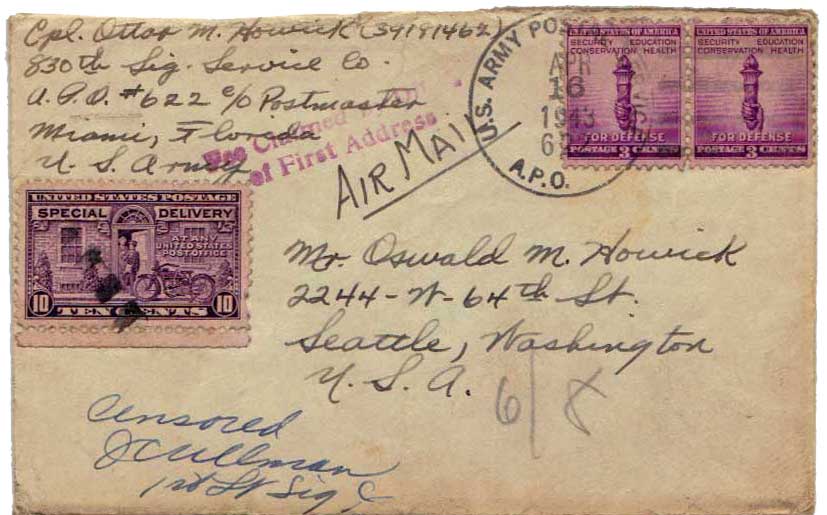 Cpl. Ottar M. Howick (39191462)
830th Sig. Service Co.
A.P.O. #622 c/o Postmaster
Miami, Florida
U. S. Army
Fee Claimed
of First Address
AIR MAIL
U.S. ARMY POSTAL
APR
16
1943
A.P.O.
UNITED STATES OF AMERICA
SECURITY EDUCATION
CONSERVATION HEALTH
FOR DEFENSE
POSTAGE 3 CENTS
UNITED STATES OF AMERICA
SECURITY EDUCATION
CONSERVATION HEALTH
FOR DEFENSE
POSTAGE 3 CENTS
UNITED STATES POSTAGE
SPECIAL DELIVERY
AT ANY
UNITED STATES
POST OFFICE
10 10
TEN CENTS
Mr. Oswald M. Howick
2244-N-64th St.
Seattle, Washington
U. S. A.
6/8
Censored
JC Ullman
1st Lt Sig C